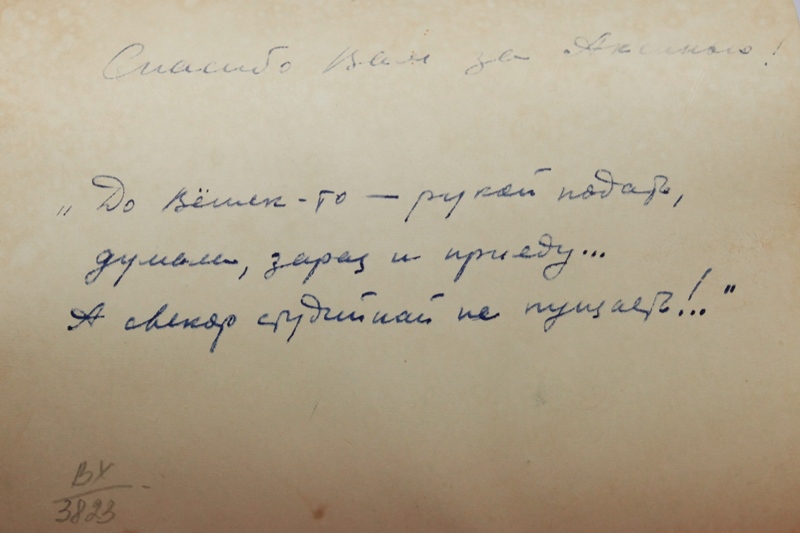 Спасибо Вам за Аксинью!
„До Вёшек-то — рукой подать,
думаю, зараз и приеду...
А свекор студийнай не пущаеть!.."
ВХ
3823